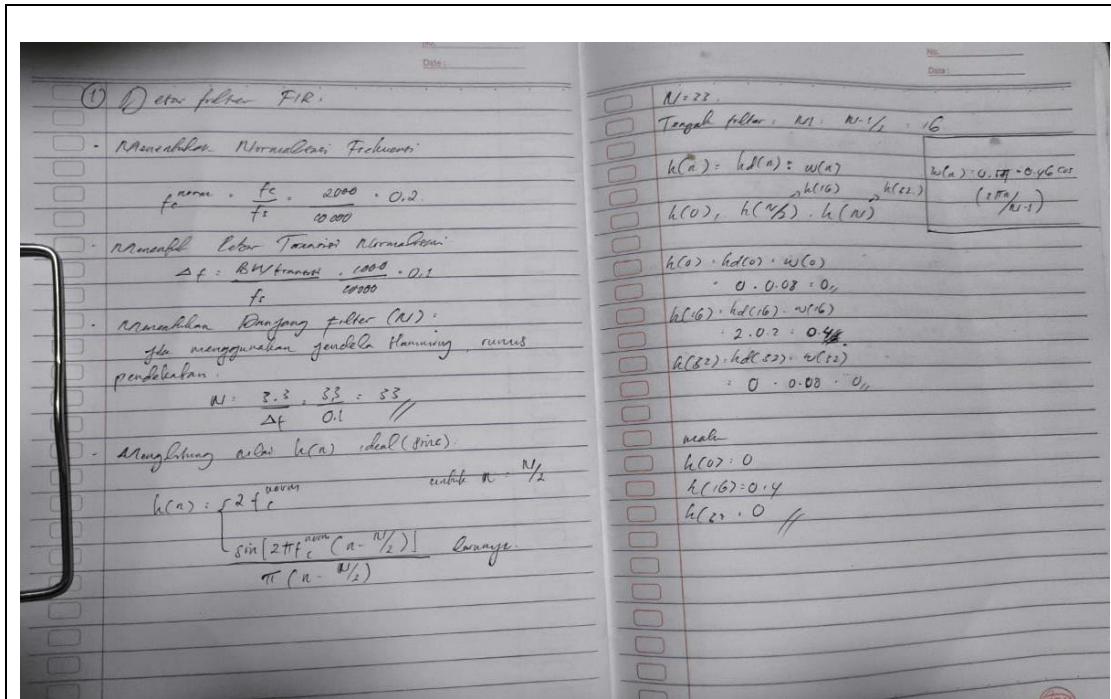 No.
Date :
① Desar filter FIR.
- Menentukan Normalisasi Frekuensi
fc norm = fc / fs = 2000 / 10 000 = 0.2
- Lebar Transisi Normalisasi
Δf = BW transisi / fs = 1000 / 10000 = 0.1
- Menentukan Panjang filter (N) :
Jika menggunakan jendela Hamming, rumus
pendekatan.
N = 3.3 / Δf = 3,3 / 0.1 = 33 //
- Menghitung nilai h(n) ideal (sinc).
h(n) = { 2 fc norm untuk n = N/2
sin[2πfc norm (n - N/2)] / π(n - N/2) lainnya.
No.
Date :
N = 33.
Tengah filter : M = N-1/2 = 16
h(n) = hd(n) : w(n)
w(n) = 0.54 - 0.46 cos
(2πn / N-1)
h(16) h(32)
h(0), h(N/2), h(N)
h(0) = hd(0) . w(0)
= 0 . 0.08 = 0 //
h(16) = hd(16) . w(16)
= 2 . 0.2 = 0.4
h(32) = hd(32) . w(32)
= 0 . 0.08 = 0 //
maka
h(0) = 0
h(16) = 0.4
h(32 = 0 //